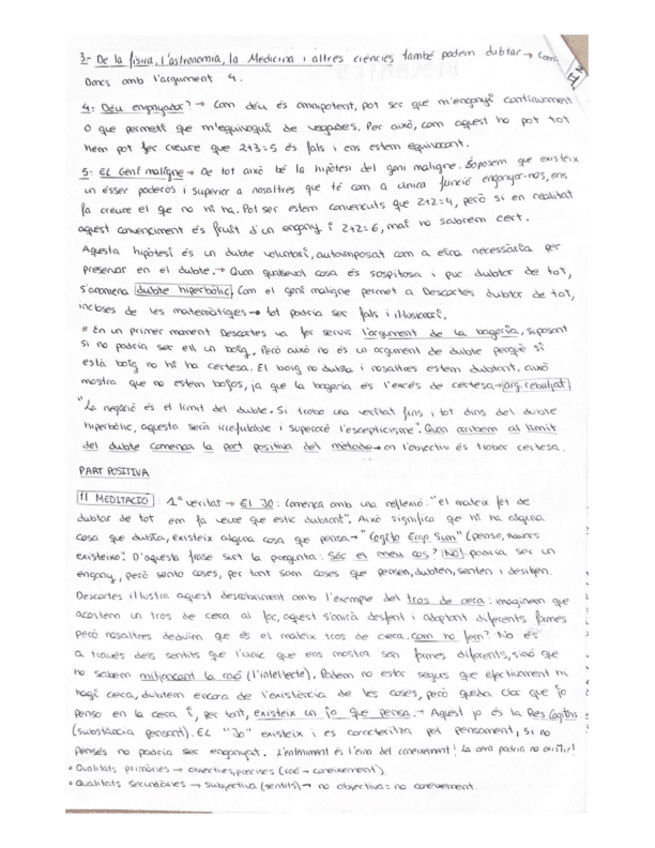 3- De la física, l'astronomia, la Medicina i altres ciències també podem dubtar →
Doncs amb l'argument 4.
4: Déu enganyador? → Com déu és omnipotent, pot ser que m'enganyi contínuament
o que permeti que m'equivoqui de vegades. Per això, com aquest ho pot tot
hem pot fer creure que 2+3=5 és fals i ens estem equivocant.
5: El Geni maligne → De tot això bé la hipòtesi del geni maligne. Suposem que existeix
un ésser poderós i superior a nosaltres que té com a única funció enganyar-nos, ens
fa creure el que no hi ha. Pot ser estem convençuts que 2+2=4, però si en realitat
aquest convenciment és fruit d'un engany i 2+2=6, mai no sabrem cert.
Aquesta hipòtesi és un dubte voluntari, autoimposat com a eina necessària per
preservar en el dubte. → Quan qualsevol cosa és sospitosa i puc dubtar de tot,
s'anomena dubte hiperbòlic. Com el geni maligne permet a Descartes dubtar de tot,
incloses de les matemàtiques → tot podria ser fals i il·lusionari.
* En un primer moment Descartes va fer servir l'argument de la bogeria, suposant
si no podria ser ell un boig. Però això no és un argument de dubte perquè si
està boig no hi ha certesa. El boig no dubta i nosaltres estem dubtant, això
mostra que no estem bojos, ja que la bogeria és l'excés de certesa → arg. rebutjat
"La negació és el límit del dubte. Si trobo una veritat fins i tot dins del dubte
hiperbòlic, aquesta serà irrefutable i superaré l'escepticisme". Quan arribem al límit
del dubte comença la part positiva del mètode → on l'objectiu és trobar certesa.
PART POSITIVA
II MEDITACIÓ: 1ª veritat → El JO: Comença amb una reflexió. "el mateix fet de
dubtar de tot em fa veure que estic dubtant". Això significa que hi ha alguna
cosa que dubta, existeix alguna cosa que pensa → "Cogito Ergo Sum" (penso, llavors
existeixo). D'aquesta frase surt la pregunta: Sóc el meu cos? NO! podria ser un
engany, però sento coses, per tant som coses que pensen, dubten, senten i desitgen.
Descartes il·lustra aquest descobriment amb l'exemple del tros de cera: imaginem que
acostem un tros de cera al foc, aquest s'anirà desfent i adoptant diferents formes
però nosaltres deduim que és el mateix tros de cera. Com ho fem? No és
a través dels sentits que l'únic que ens mostra són formes diferents, sinó que
ho sabem mitjançant la raó (l'intel·lecte). Podem no estar segurs que efectivament hi
hagi cera, dubtem encara de l'existència de les coses, però queda clar que jo
penso en la cera i, per tant, existeix un jo que pensa. → Aquest jo és la Res Cogitans
(substància pensant). El "Jo" existeix i es caracteritza pel pensament, si no
pensés no podria ser enganyat. L'enteniment és l'eina del coneixement! La cera podria no existir!
• Qualitats primàries → objectives, precises (raó → coneixement)
• Qualitats secundàries → subjectiva (sentits) → no objectiva = no coneixement.